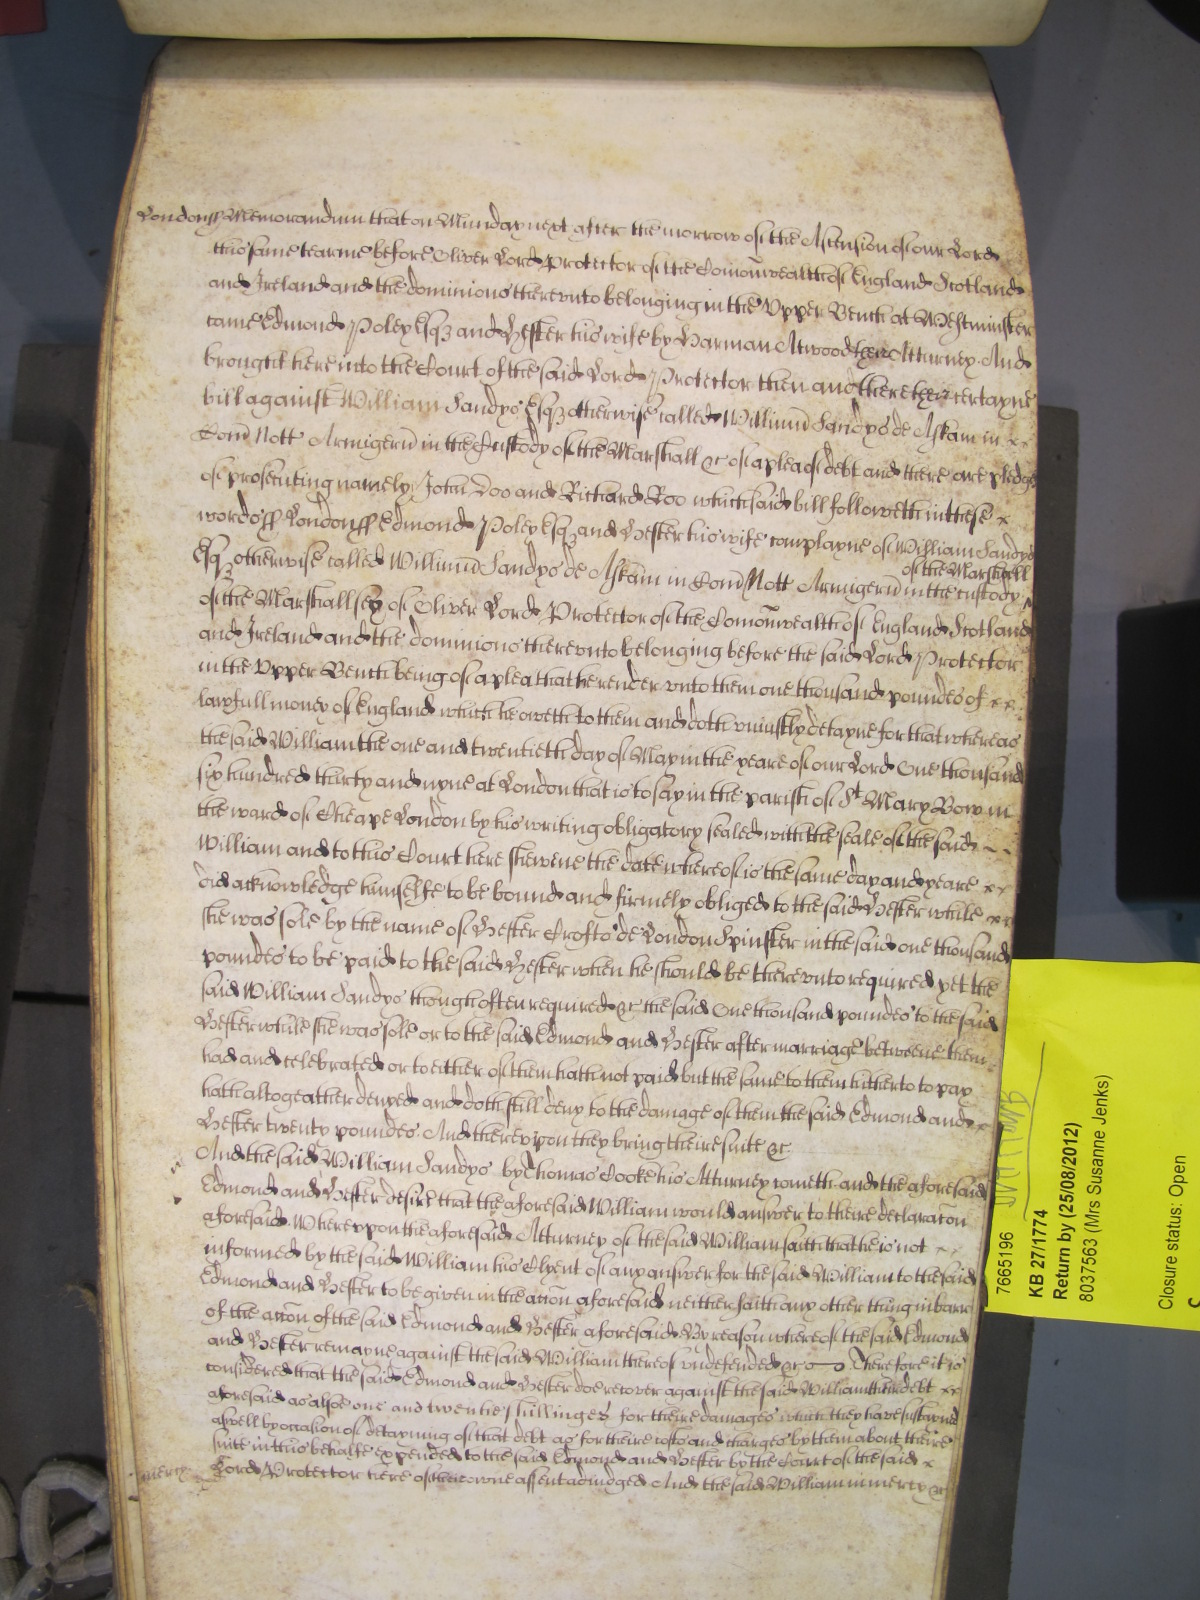 London ss Memorandum that on Munday next after the morrow of the Ascension of our Lord
this same tearme before Oliver Lord Protector of the Comonwealth of England Scotland
and Ireland and the dominions thereunto belonging in the Upper Bench at Westminster
came Edmond Poley Esqz and Hester his wife by Harman Atwood their Atturney And
brought here into the Court of the said Lord Protector then and there their certayne
bill against William Sandys Esqz otherwise called Willimu Sandys de Askam in
Com Nott Armigeru in the Custody of the Marshall &c of a plea of debt and there are pledges
of prosecuting namely John Doo and Richard Roo which said bill followeth in these
words ss London ss Edmond Poley Esqz and Hester his wife complayne of William Sandys
Esqz otherwise called Willimu Sandys de Askam in Com Nott Armigeru in the custody
of the Marshall
of the Marshallsey of Oliver Lord Protector of the Comonwealth of England Scotland
and Ireland and the dominions thereunto belonging before the said Lord Protector
in the Upper Bench being of a plea that he render unto them one thousand poundes of
lawfull money of England which he oweth to them and doth uniustly detayne for that whereas
the said William the one and twentieth day of May in the yeare of our Lord One thousand
six hundred thirty and nyne at London that is to say in the parish of St Mary Bow in
the ward of Cheape London by his writing obligatory sealed with the seale of the said
William and to this Court here shewene the date whereof is the same day and yeare
did acknowledge himselfe to be bound and firmely obliged to the said Hester while
she was sole by the name of Hester Crofts de London Spinster in the said one thousand
poundes to be paid to the said Hester when he should be thereunto required yet the
said William Sandys though often required &c the said One thousand poundes to the said
Hester while she was sole or to the said Edmond and Hester after marriage betweene them
had and celebrated or to either of them hath not paid but the same to them hitherto to pay
hath altogeather denyed and doth still deny to the damage of them the said Edmond and
Hester twenty poundes And thereupon they bring theire suite &c
And the said William Sandys by Thomas Cooke his Atturney cometh and the aforesaid
Edmond and Hester desire that the aforesaid William would answer to theire declaraton
aforesaid Whereuppon the aforesaid Atturney of the said William saith that he is not
informed by the said William his Clyent of any answer for the said William to the said
Edmond and Hester to be given in the acton aforesaid neither saith any other thing in barre
of the acton of the said Edmond and Hester aforesaid By reason whereof the said Edmond
and Hester remayne against the said William thereof undefended &c Therefore it is
considered that the said Edmond and Hester doe recover against the said William their debt
aforesaid as alsoe one and twentie shillinges for theire damages which they have sustayned
aswell by occasion of detayning of that debt as for theire costs and charges by them about theire
suite in this behalfe expended to the said Edmond and Hester by the Court of the said
mercy Lord Protector here of their owne assent adiudged And the said William in mercy &c
7665196
KB 27/1774
Return by (25/08/2012)
8037563 (Mrs Susanne Jenks)
Closure status: Open